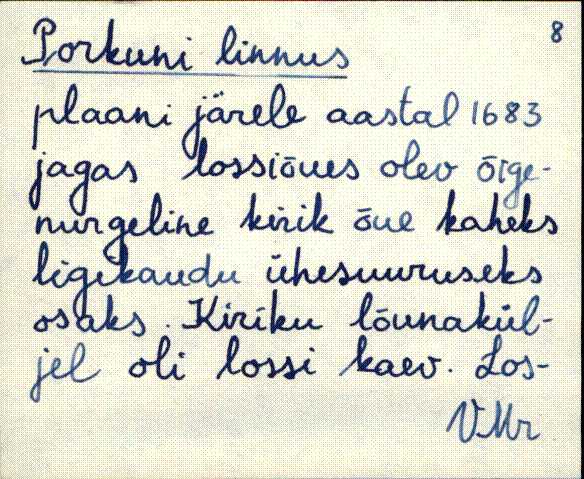 8
Porkuni linnus
plaani järele aastal 1683
jagas lossiõues olev õige-
nurgeline kirik õue kaheks
ligikaudu ühesuuruseks
osaks. Kiriku lõunakül-
jel oli lossi kaev. Los-
VMr